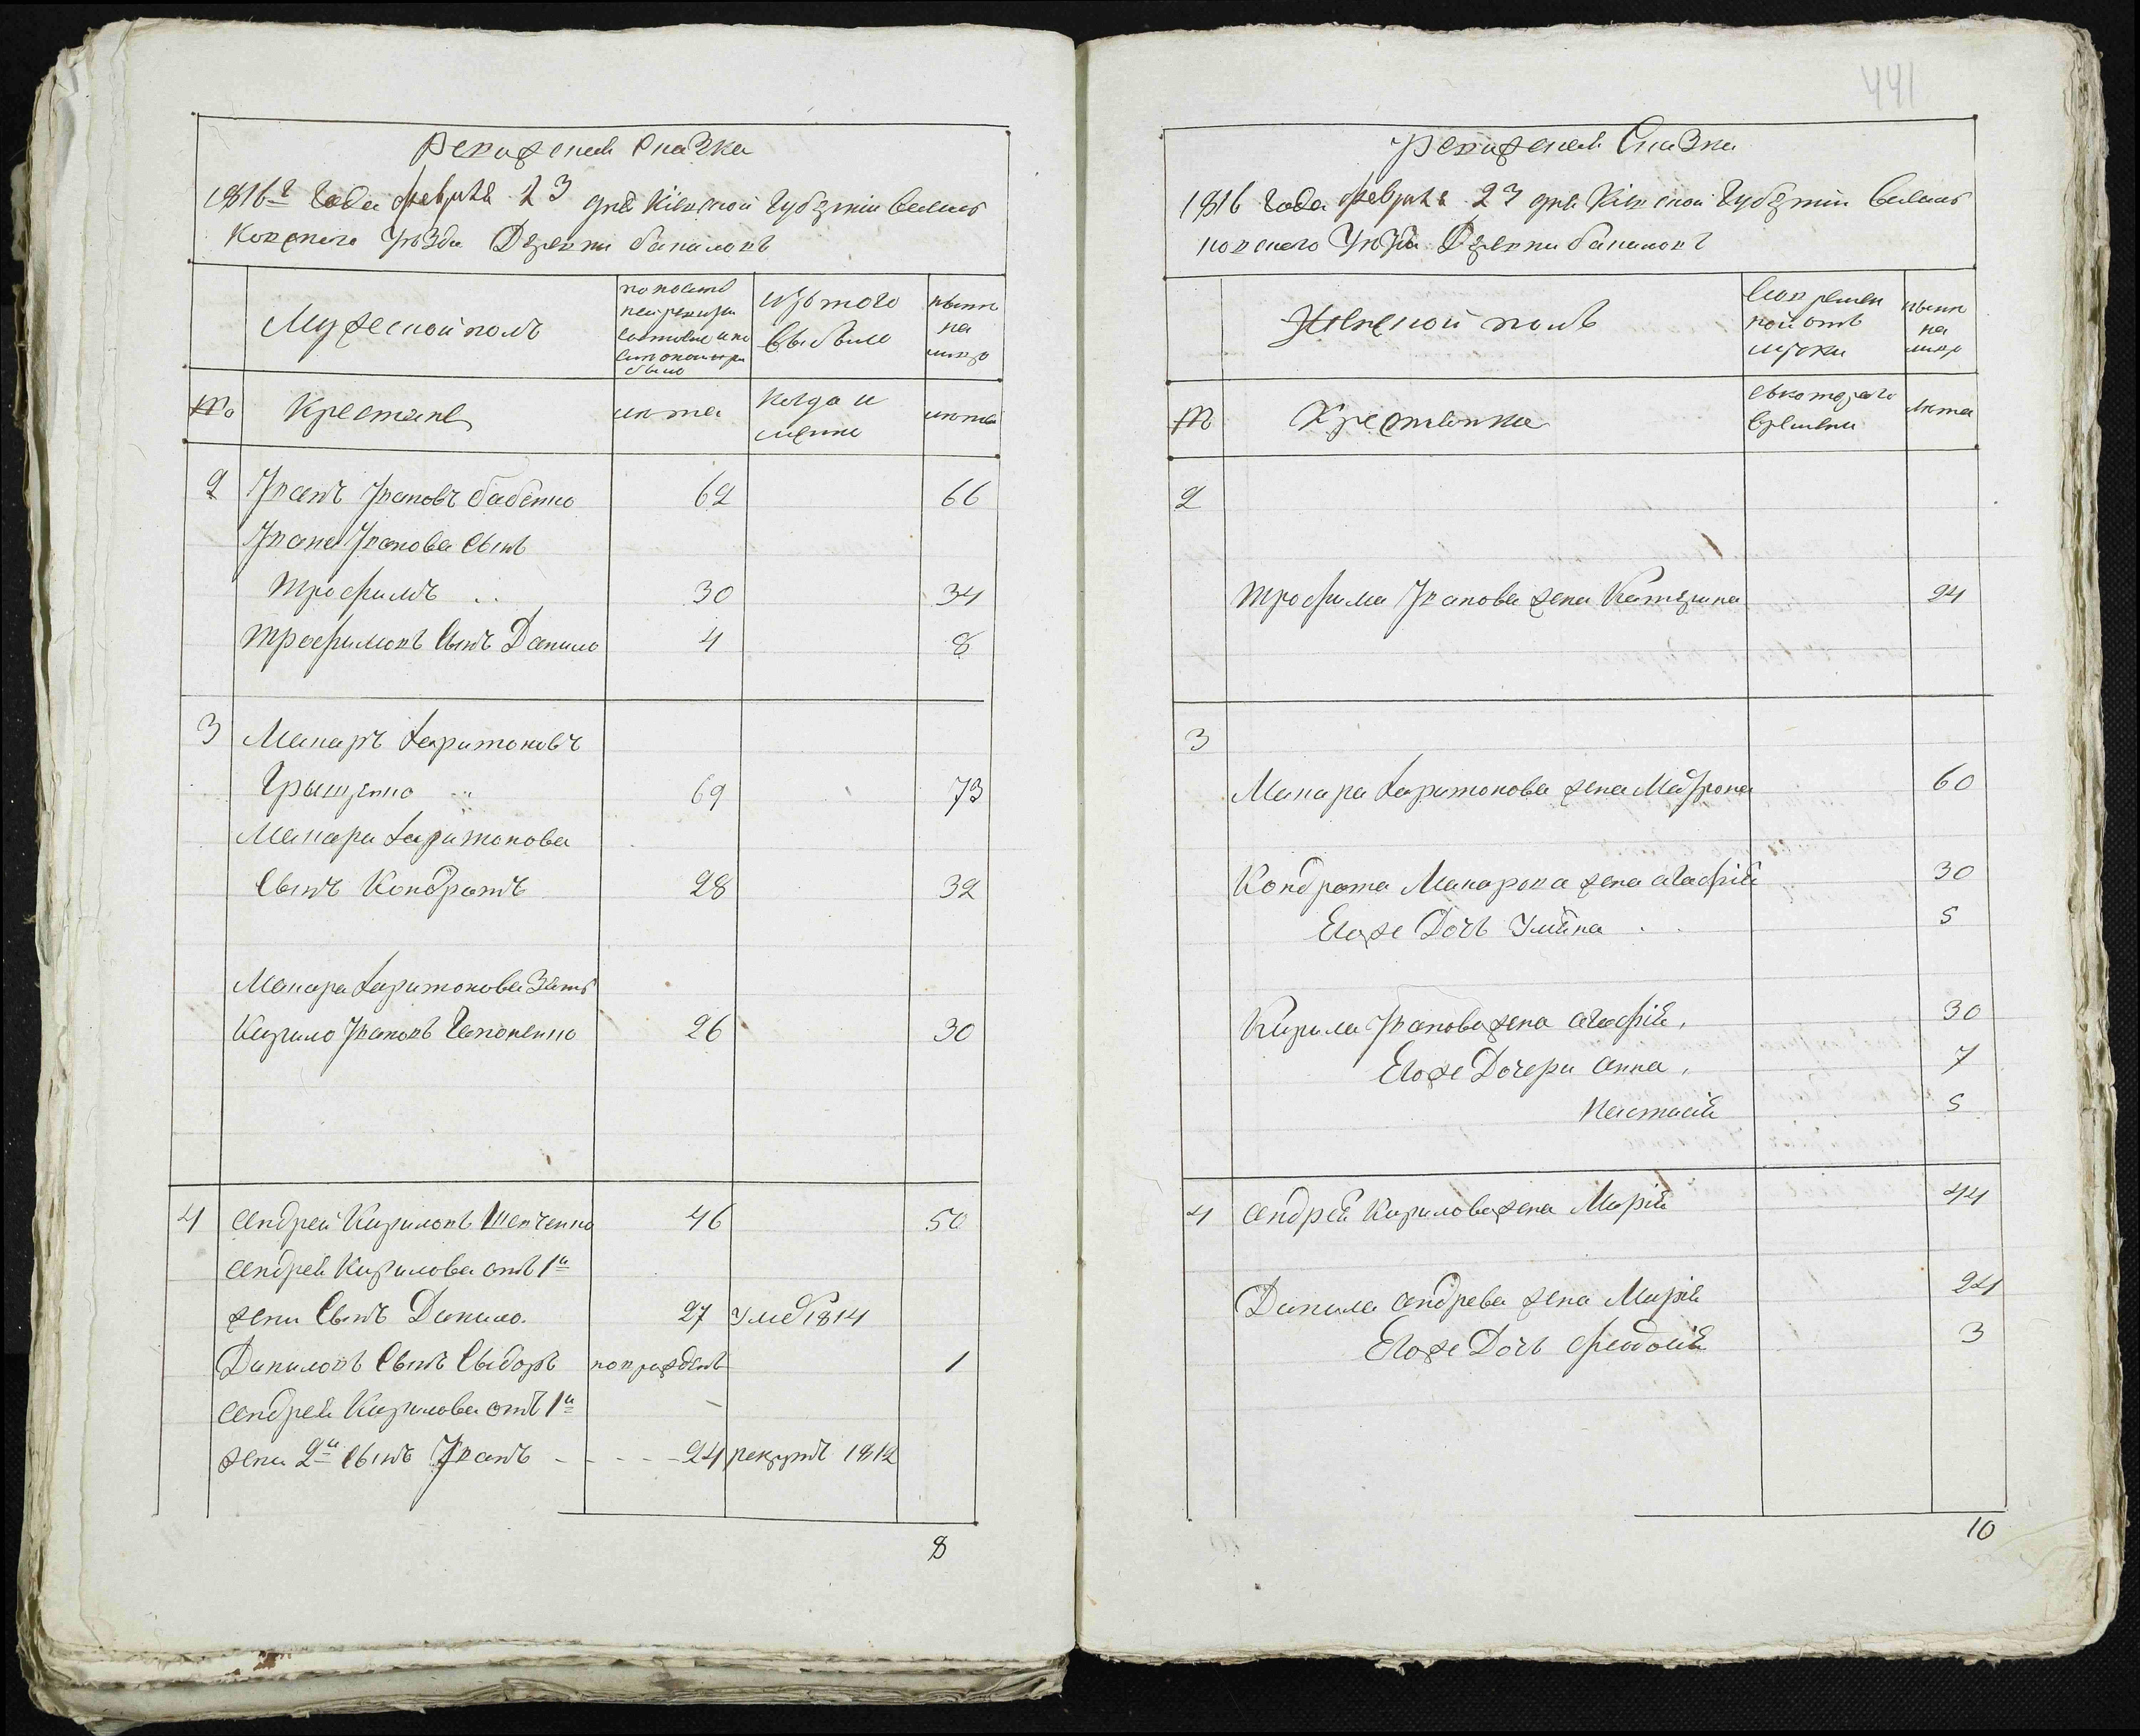 Ревижская Сказка
1816г Года февраля 23 дня Кіевской Губерніи Василь
ковскаго уезда Деревни
Мужеской полъ
по послед
ней ревизіи
состояло и по
было
изъ того
выбыло
ныне
на
лицо
№
Крестяне
лета
когда и
лета
2
Иванъ Ивановъ Бабенко
62
66
Ивана Иванова Сынъ
Трофимъ
30
34
Трофимовъ Сынъ Данило
4
8
3
Макаръ Харитоновъ
Грыщенко
69
73
Макара Харитонова
Сынъ Кондратъ
28
32
Макара Харитонова Зять
Кирило Ивановъ Гапоненко
26
30
4
Андрей Кириловъ Шевченко
46
50
Андрея Кирилова отъ 1й
жени Сынъ Данило
27
Умеб 1814
Даниловъ Сынъ Сыдоръ
новрожденъ
1
Андрея Кирилова отъ 1й
жени 2й Сынъ Иванъ
24
рекрутъ 1812
8
441
Ревижская Сказка
1816 Года февраля 23 дня Кіевской Губерніи Василь
ковскаго Уезда Деревни
Женской полъ
Во времен
ной отъ
лучки
ныне
на
лицо
№
Крестянки
Съ котораго
времени
лета
2
Трофима Иванова жена Катерина
24
3
Макара Харитонова жена Мадрона
60
Кондрата Макарова жена Агафія
30
Его же Дочь Улияна
5
Кирила Иванова жена Агафія
30
Его же Дочери Анна
7
Настасія
5
4
Андрея Кирилова жена Марія
44
Данила Андрева жена Марія
24
Его же Дочь Феодосія
3
10